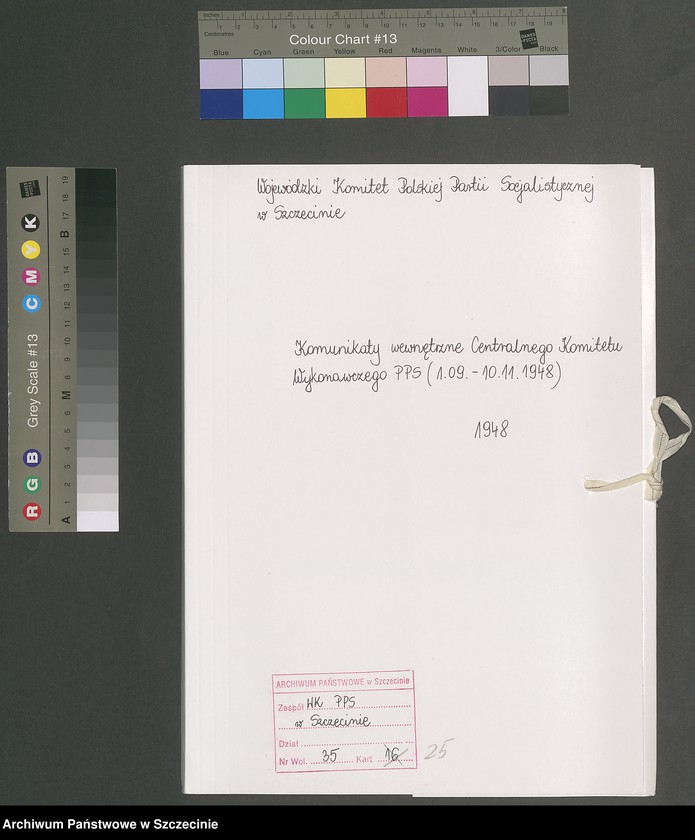 Inches 1 2 3 4 5 6 7 8
Centimetres 1 2 3 4 5 6 7 8 9 10 11 12 13 14 15 16 17 18 19
Colour Chart #13
Blue Cyan Green Yellow Red Magenta White 3/Color Black
Grey Scale #13
R G B C M Y K
A 1 2 3 4 5 6 M 8 9 10 11 12 13 14 15 B 17 18 19
Wojewódzki Komitet Polskiej Partii Socjalistycznej
w Szczecinie
Komunikaty wewnętrzne Centralnego Komitetu
Wykonawczego PPS (1.09.-10.11.1948)
1948
ARCHIWUM PAŃSTWOWE w Szczecinie
Zespół WK PPS
w Szczecinie
Dział
Nr Wol. 35 Kart 16 25
Archiwum Państwowe w Szczecinie